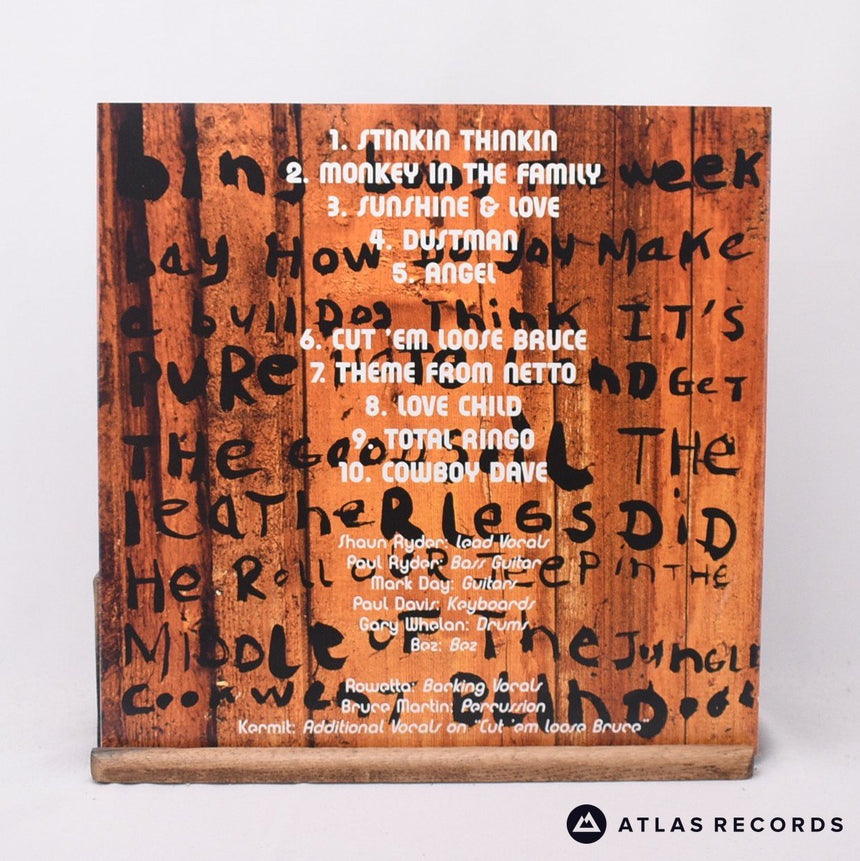 1. STINKIN THINKIN
2. MONKEY IN THE FAMILY
3. SUNSHINE & LOVE
4. DUSTMAN
5. ANGEL
6. CUT 'EM LOOSE BRUCE
7. THEME FROM NETTO
8. LOVE CHILD
9. TOTAL RINGO
10. COWBOY DAVE
week
How Do you Make
a bullDog Think IT'S
PURe AnD GeT
THe THe
leATHeR legs DiD
He Roll OR in THE
MiDDLe oF The JUNGLE
Shaun Ryder: Lead Vocals
Paul Ryder: Bass Guitar
Mark Day: Guitars
Paul Davis: Keyboards
Gary Whelan: Drums
Bez: Bez
Rowetta: Backing Vocals
Bruce Martin: Percussion
Kermit: Additional Vocals on "Cut 'em loose Bruce"
ATLAS RECORDS